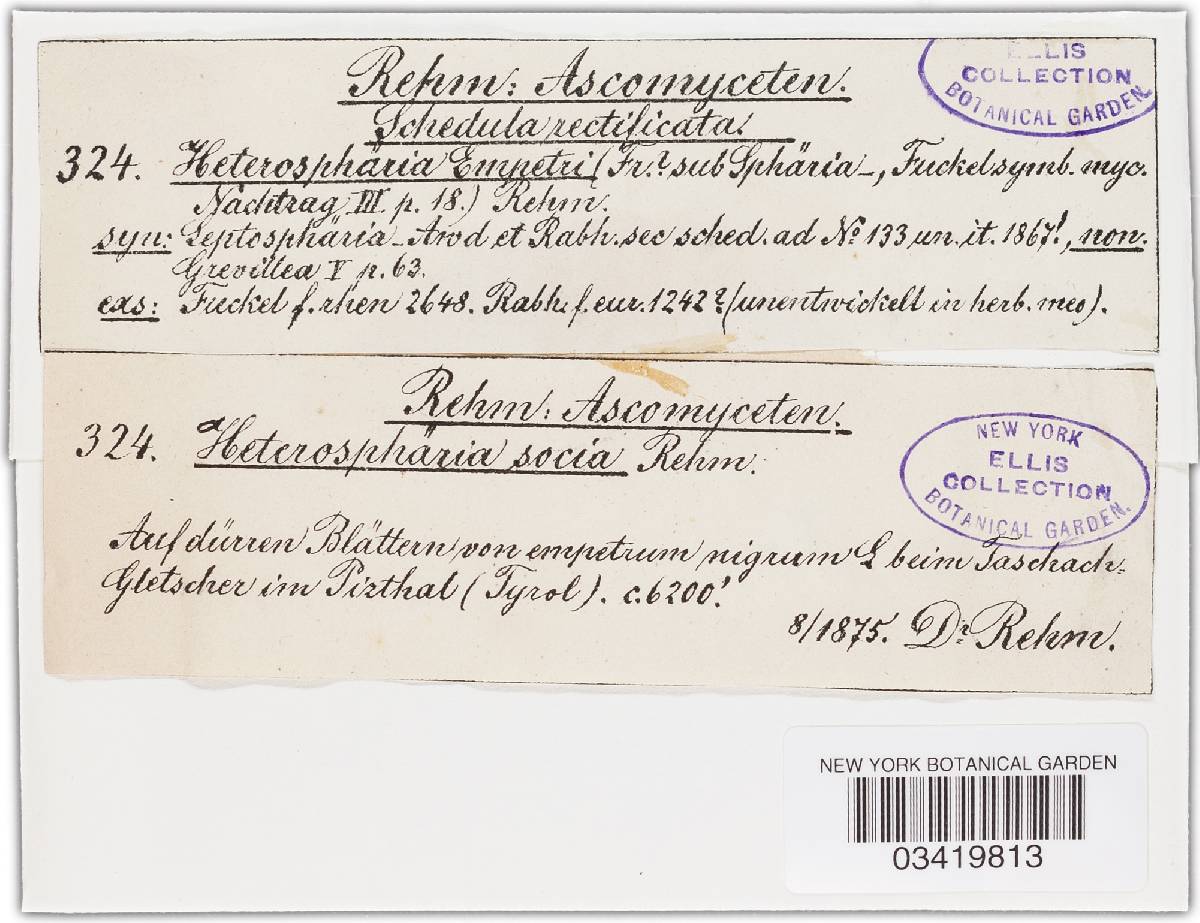 Rehm: Ascomyceten.
Schedula rectificata.
324. Heterosphäria Empetri (Fr.? sub Sphäria –, Fuckel symb. myc.
Nachtrag III p. 18.) Rehm.
syn: Leptosphäria – Awd et Rabh. sec sched. ad No 133 un. it. 1867!, non.
Grevillea V p. 63.
exs: Fuckel f. rhen 2648. Rabh. f. eur. 1242? (unentwickelt in herb. meo).
ELLIS
COLLECTION
BOTANICAL GARDEN.
Rehm: Ascomyceten.
324. Heterosphäria socia Rehm.
NEW YORK
ELLIS
COLLECTION
BOTANICAL GARDEN.
Auf dürren Blättern von empetrum nigrum L beim Taschach-
Gletscher im Pizthal (Tyrol). c. 6200'.
8/1875. Dr. Rehm.
NEW YORK BOTANICAL GARDEN
03419813